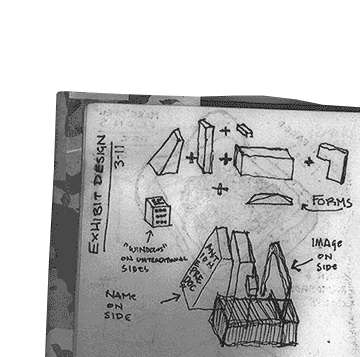 EXHIBIT DESIGN
3-11
+
+
+
+
+
FORMS
"WINDOWS"
ON UNTRADITIONAL
SIDES
IMAGE
ON
SIDE
NAME
ON
SIDE